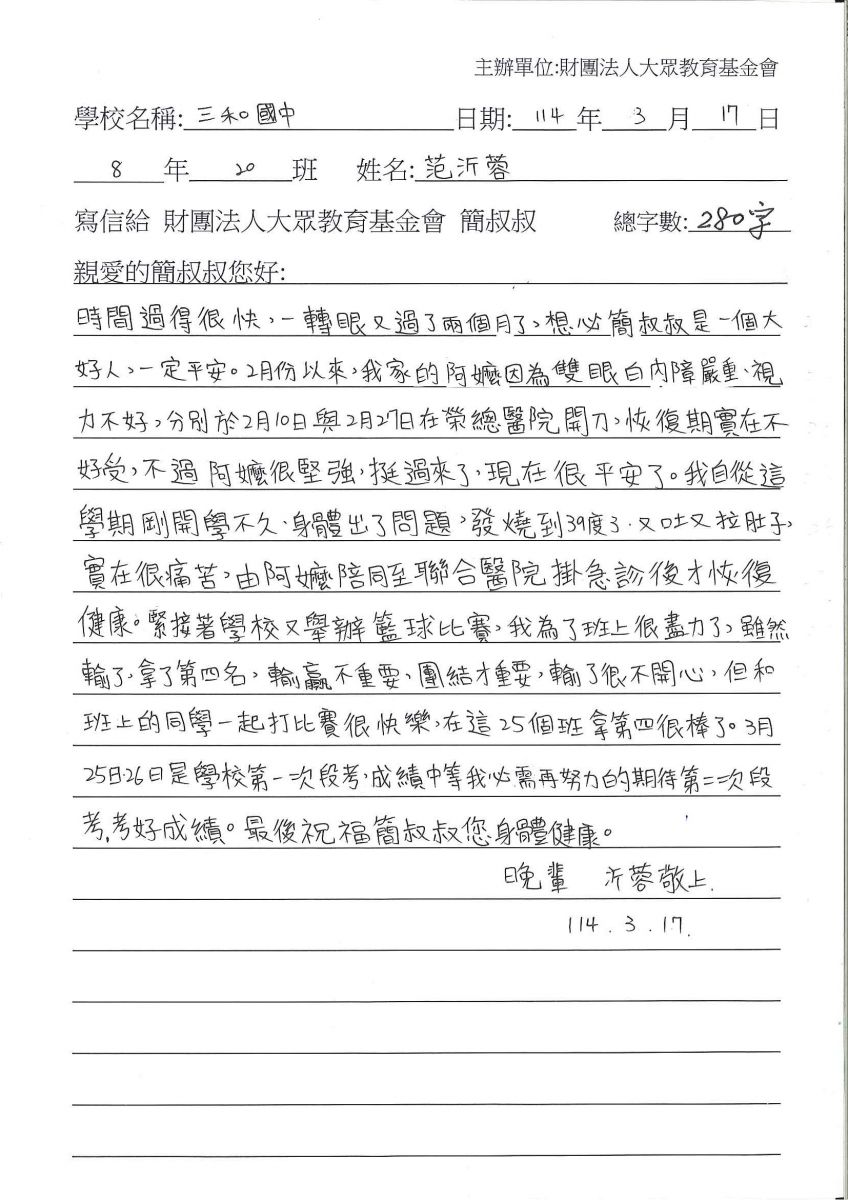 主辦單位:財團法人大眾教育基金會
學校名稱:三和國中 日期:114年3月17日
8年20班 姓名:范沂蓉
寫信給 財團法人大眾教育基金會 簡叔叔 總字數:280字
親愛的簡叔叔您好:
時間過得很快,一轉眼又過了兩個月了,想必簡叔叔是一個大
好人,一定平安。2月份以來,我家的阿嬤因為雙眼白內障嚴重、視
力不好,分別於2月10日與2月27日在榮總醫院開刀,恢復期實在不
好受,不過阿嬤很堅強,挺過來了,現在很平安了。我自從這
學期剛開學不久、身體出了問題,發燒到39度3.又吐又拉肚子,
實在很痛苦,由阿嬤陪同至聯合醫院掛急診後才恢復
健康。緊接著學校又舉辦籃球比賽,我為了班上很盡力了,雖然
輸了,拿了第四名,輸贏不重要,團結才重要,輸了很不開心,但和
班上的同學一起打比賽很快樂,在這25個班拿第四很棒了。3月
25日.26日是學校第一次段考,成績中等我必需再努力的期待第二次段
考,考好成績。最後祝福簡叔叔您身體健康。
晚輩 沂蓉敬上.
114.3.17.